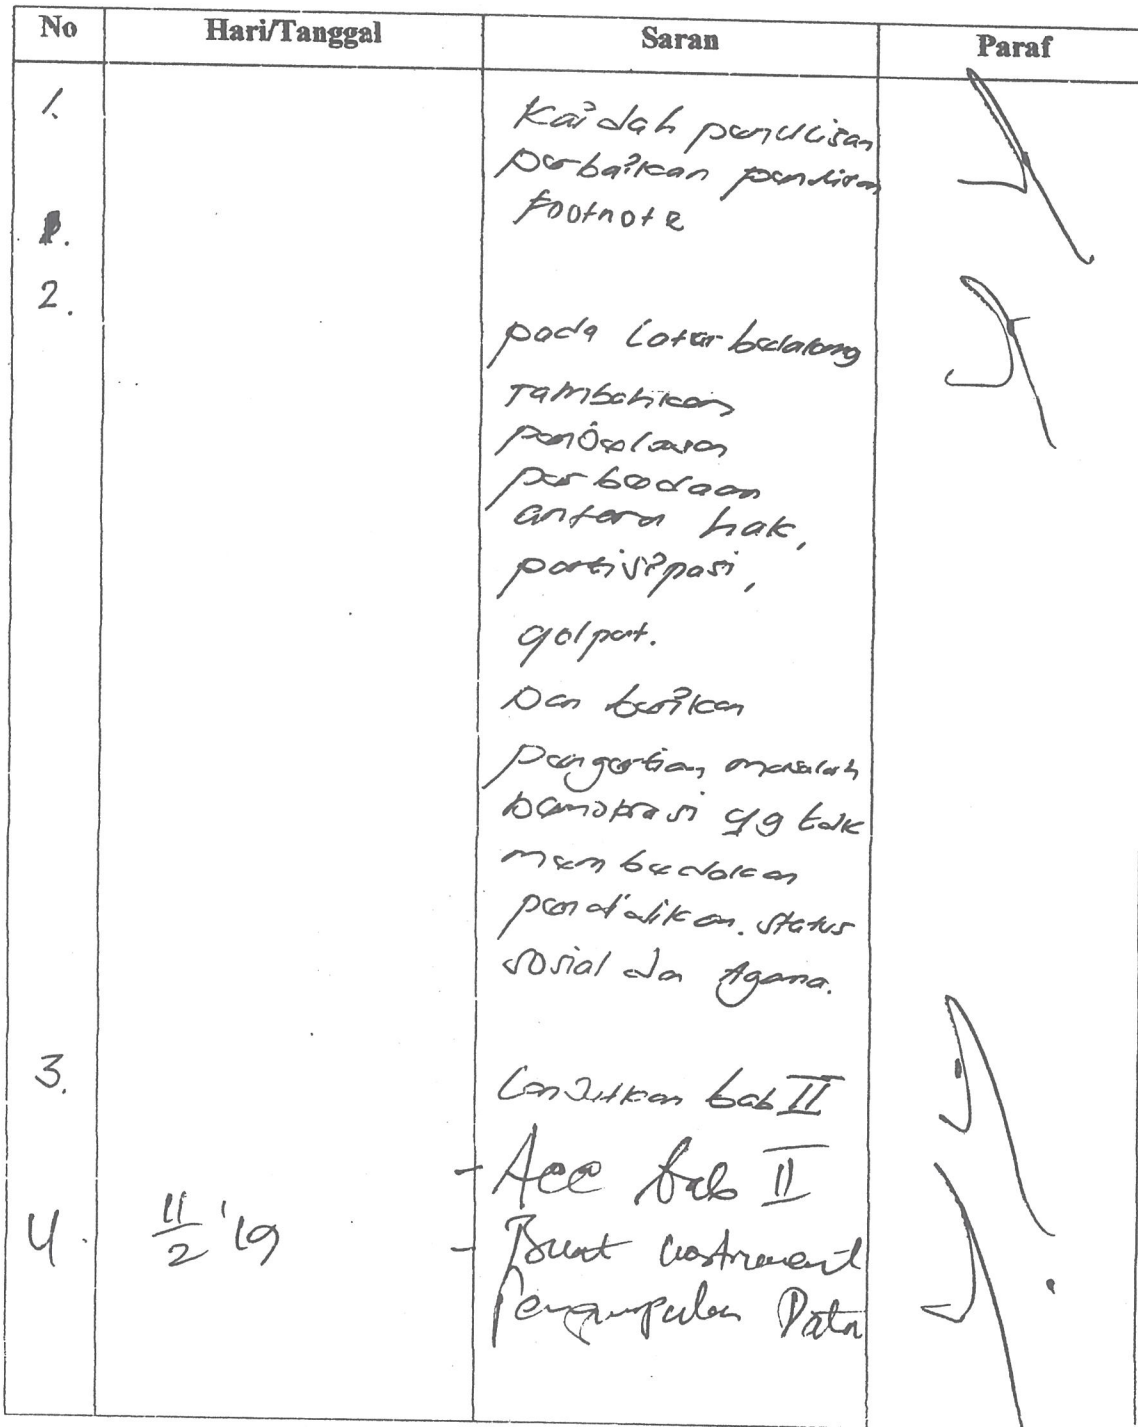 No Hari/Tanggal Saran Paraf
1. Kaidah penulisan
perbaikan penulisan
footnote
2.
pada latar belakang
Tambahkan
penjelasan
perbedaan
antara hak,
partisipasi,
golput.
Dan berikan
pengertian masalah
Demokrasi yg tdk
membedakan
pendidikan. status
sosial dan Agama.
3. Lanjutkan bab II
- Acc bab II
4. 11/2 '19 - Buat instrument
Pengumpulan Data